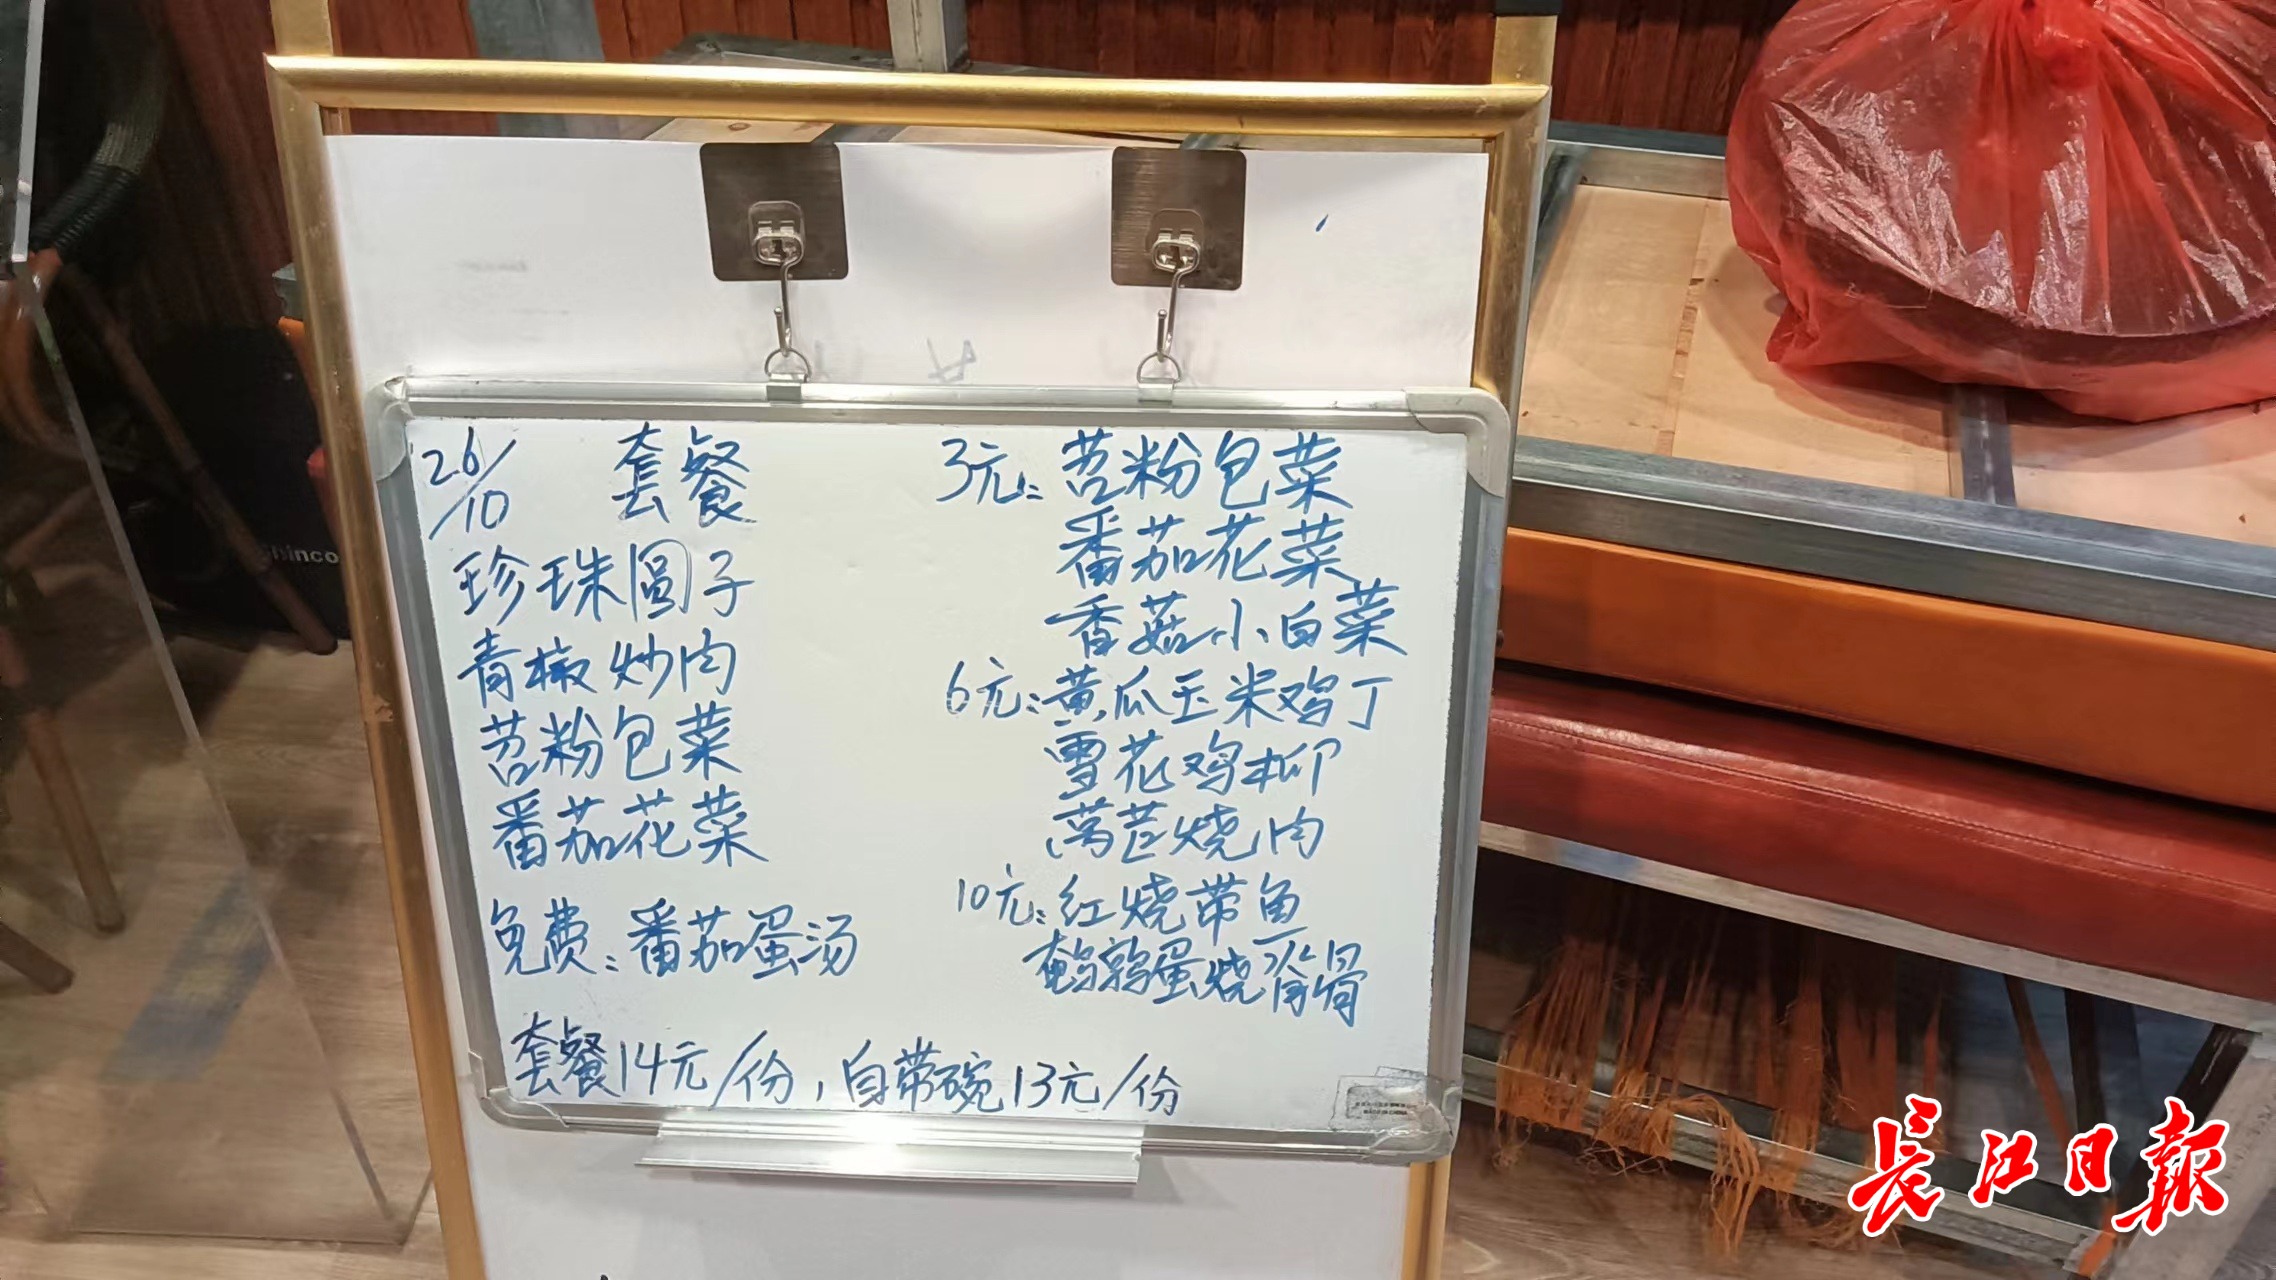 26/10 套餐
珍珠圆子
青椒炒肉
苕粉包菜
番茄花菜
免费:番茄蛋汤
3元:苕粉包菜
番茄花菜
香菇小白菜
6元:黄瓜玉米鸡丁
雪花鸡柳
莴苣烧肉
10元:红烧带鱼
鹌鹑蛋烧脊骨
套餐14元/份,自带碗13元/份
长江日报